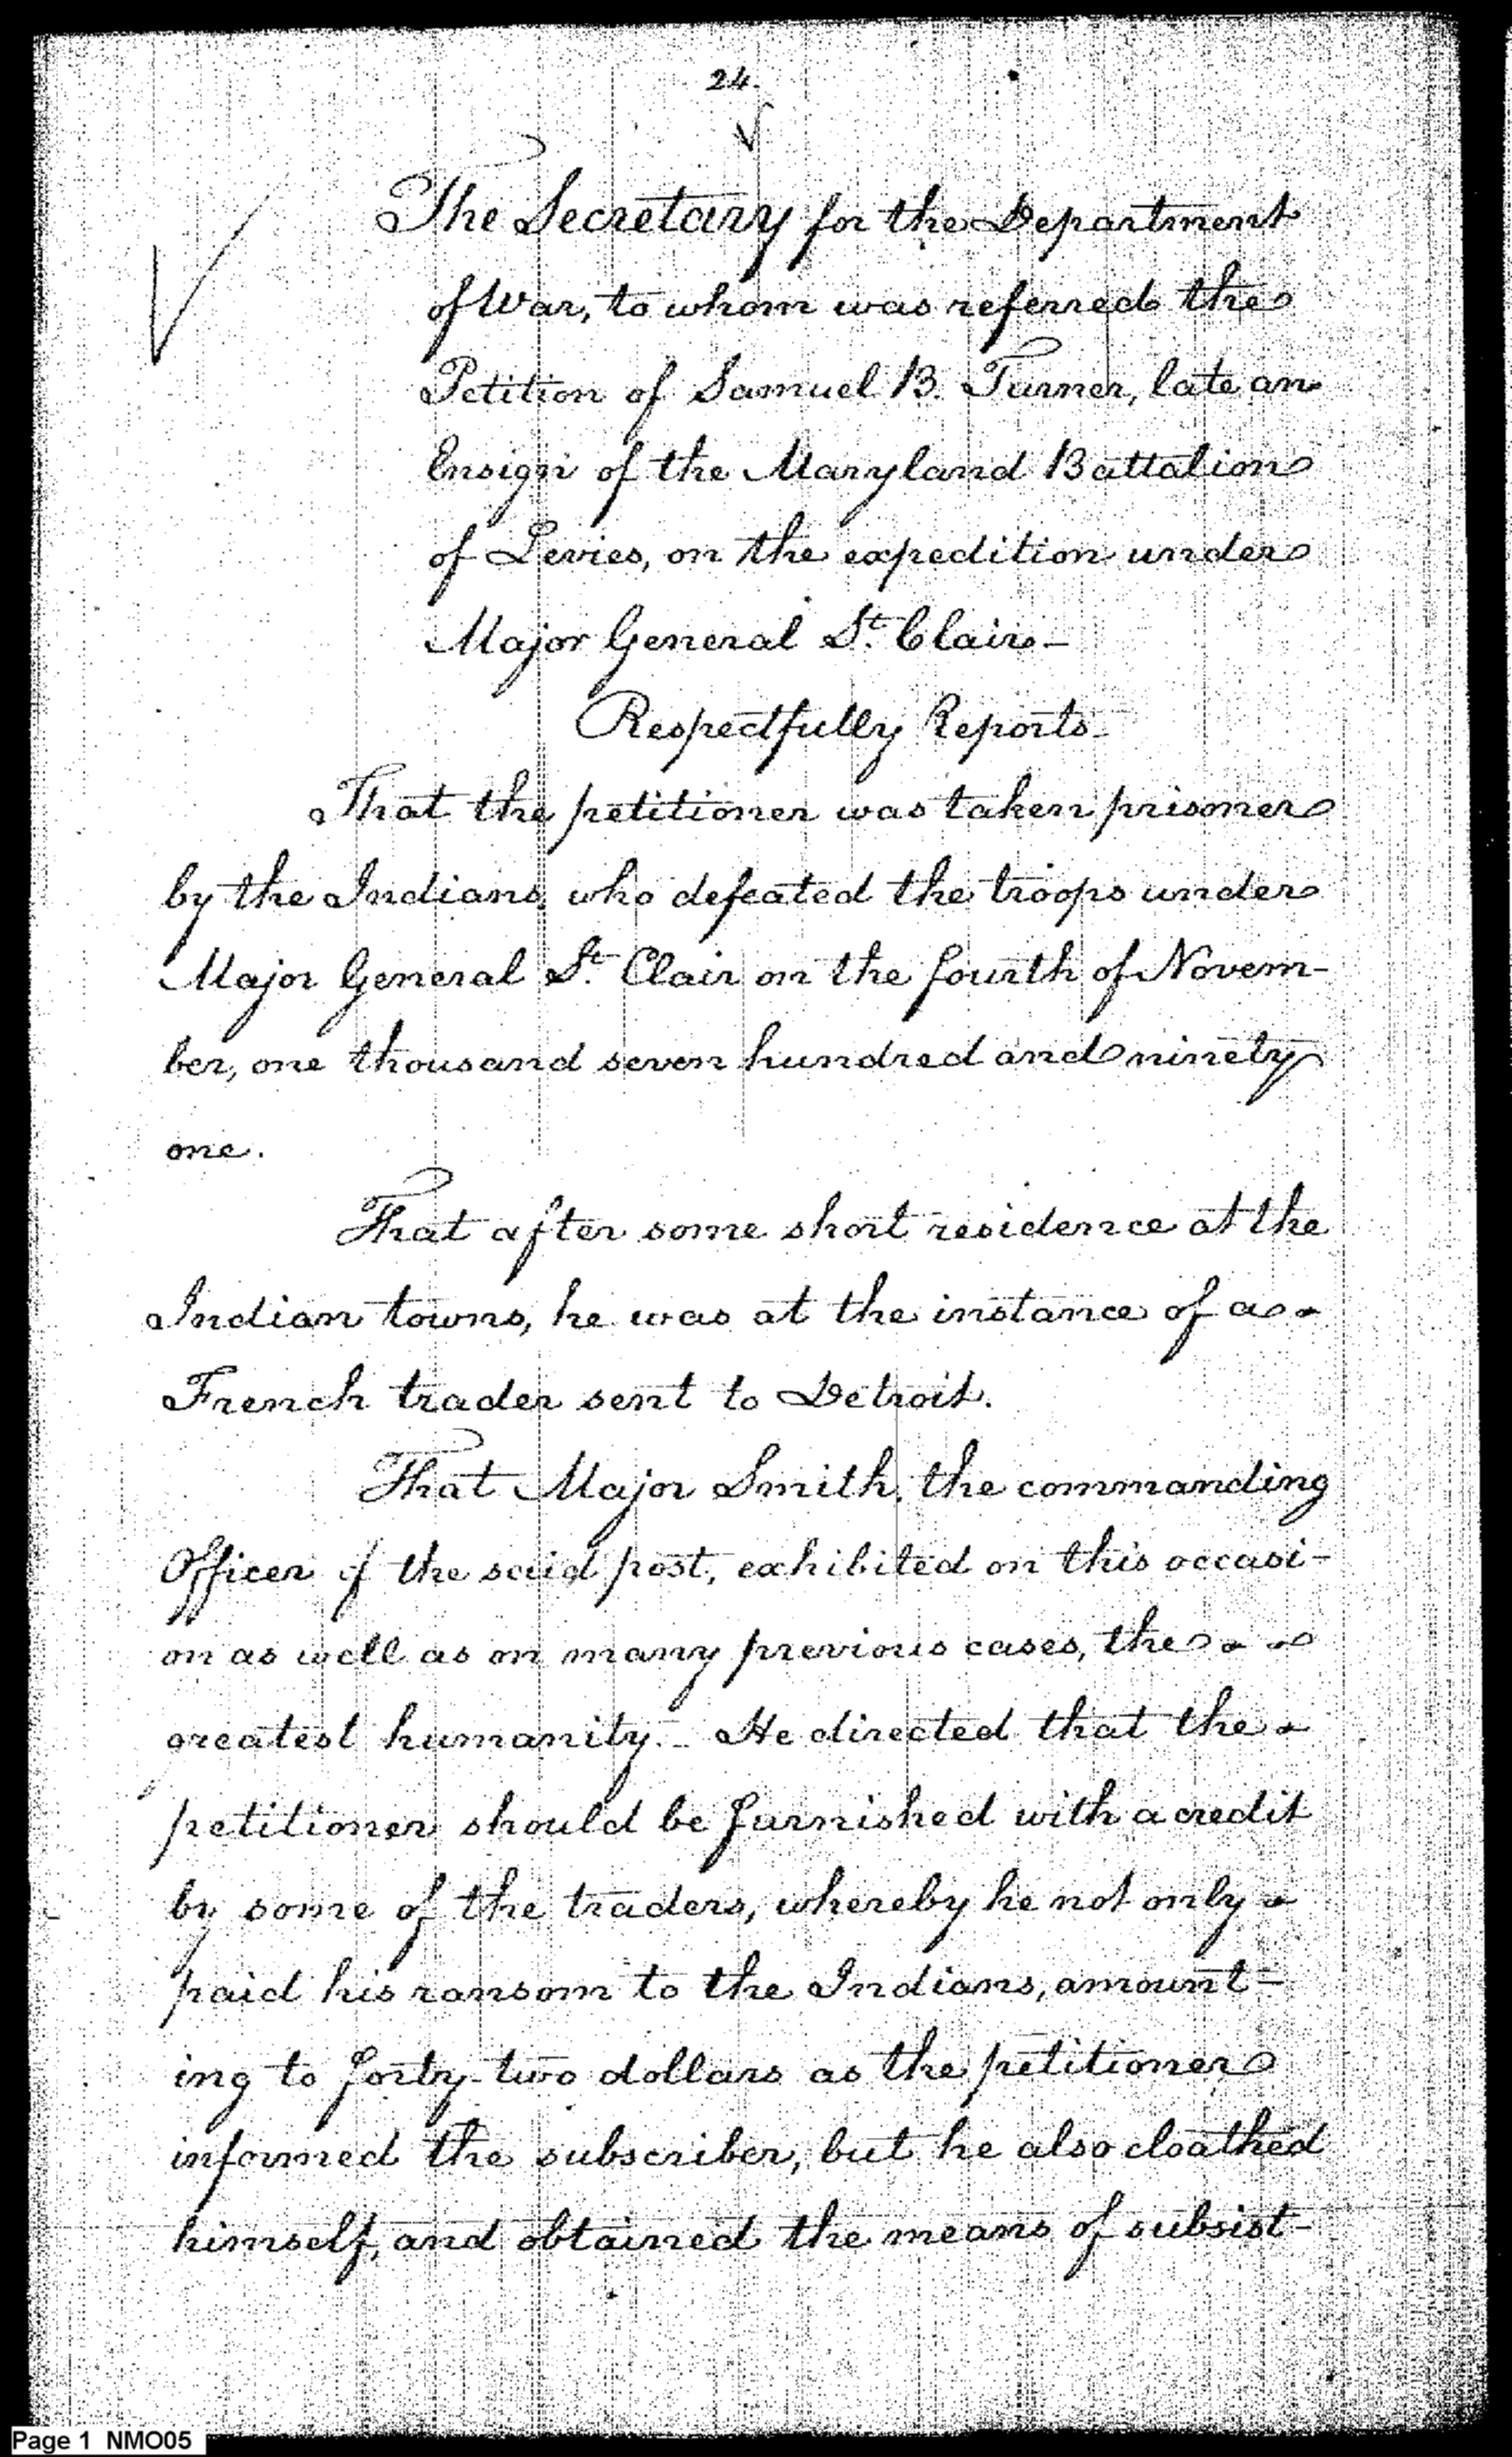 24.
The Secretary for the Department
of War, to whom was referred the
Petition of Samuel B. Turner, late an
Ensign of the Maryland Battalion
of Levies, on the expedition under
Major General St. Clair -
Respectfully Reports -
That the petitioner was taken prisoner
by the Indians who defeated the troops under
Major General St. Clair on the fourth of Novem-
ber, one thousand seven hundred and ninety
one.
That after some short residence at the
Indian towns, he was at the instance of a
French trader sent to Detroit.
That Major Smith, the commanding
Officer of the said post, exhibited on this occasi-
on as well as on many previous cases, the
greatest humanity. - He directed that the
petitioner should be furnished with a credit
by some of the traders, whereby he not only
paid his ransom to the Indians, amount-
ing to forty-two dollars as the petitioner
informed the subscriber, but he also cloathed
himself, and obtained the means of subsist-
Page 1 NMO05